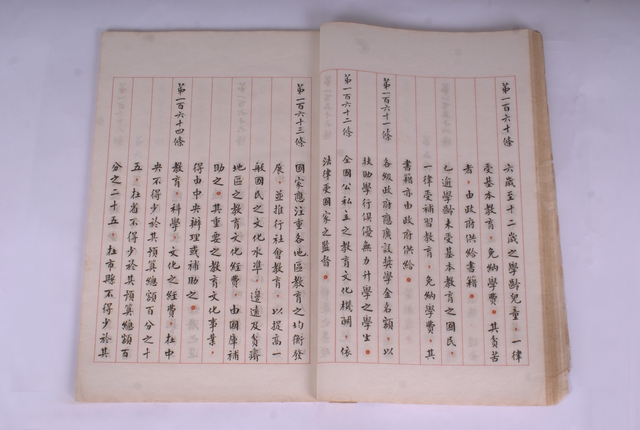 第一百六十條 六歲至十二歲之學齡兒童，一律
受基本教育，免納學費。其貧苦
者，由政府供給書籍。
已逾學齡未受基本教育之國民，
一律受補習教育，免納學費，其
書籍亦由政府供給。
第一百六十一條 各級政府應廣設獎學金名額，以
扶助學行俱優無力升學之學生。
第一百六十二條 全國公私立之教育文化機關，依
法律受國家之監督。
第一百六十三條 國家應注重各地區教育之均衡發
展，並推行社會教育，以提高一
般國民之文化水準，邊遠及貧瘠
地區之教育文化經費，由國庫補
助之。其重要之教育文化事業，
得由中央辦理或補助之。
第一百六十四條 教育，科學，文化之經費，在中
央不得少於其預算總額百分之十
五，在省不得少於其預算總額百
分之二十五，在市縣不得少於其